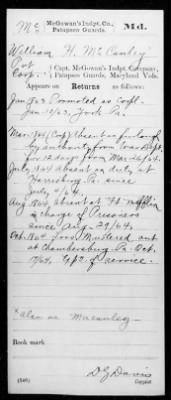 Mc McGowan's Indpt. Co., Patapsco Guards. Md.
William H. McCauley
Pvt
Corp., Capt. McGowan's Indpt. Company,
Patapsco Guards, Maryland Vols.
Appears on Returns as follows:
Jan. 1863 Promoted as Corpl.
Jan 10/63, York Pa.
Mar. 1864 (Corp) Absent on furlough
by authority from War Dept.
for 12 days from Mar 26/64.
July 1864 absent on duty at
Harrisburg Pa. since
July 4/64.
Aug 1864, absent at Ft. Mifflin
in charge of Prisoners
since Aug. 29/64.
Oct. 1864 Mustered out
at Chambersburg Pa. Oct.
of service.
* also as Macauley
Book mark
(546)
D G Davis
Copyist